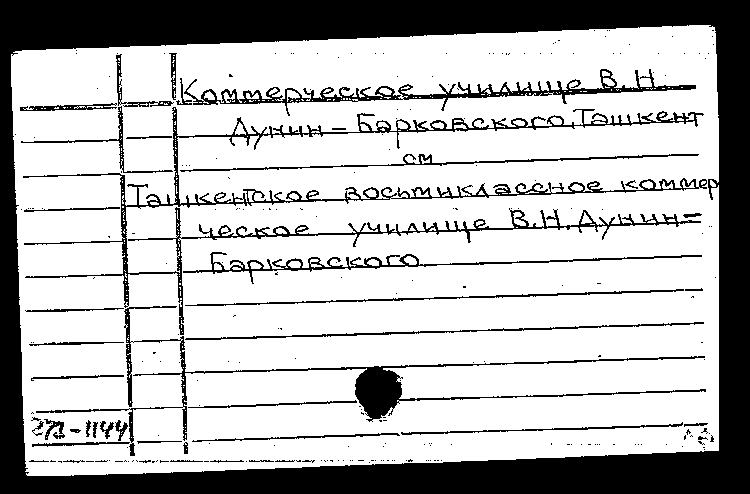 Коммерческое училище В.Н.
Дунин=Барковского, Ташкент
см.
Ташкентское восьмиклассное коммер
ческое училище В.Н. Дунин=
Барковского
271-1144